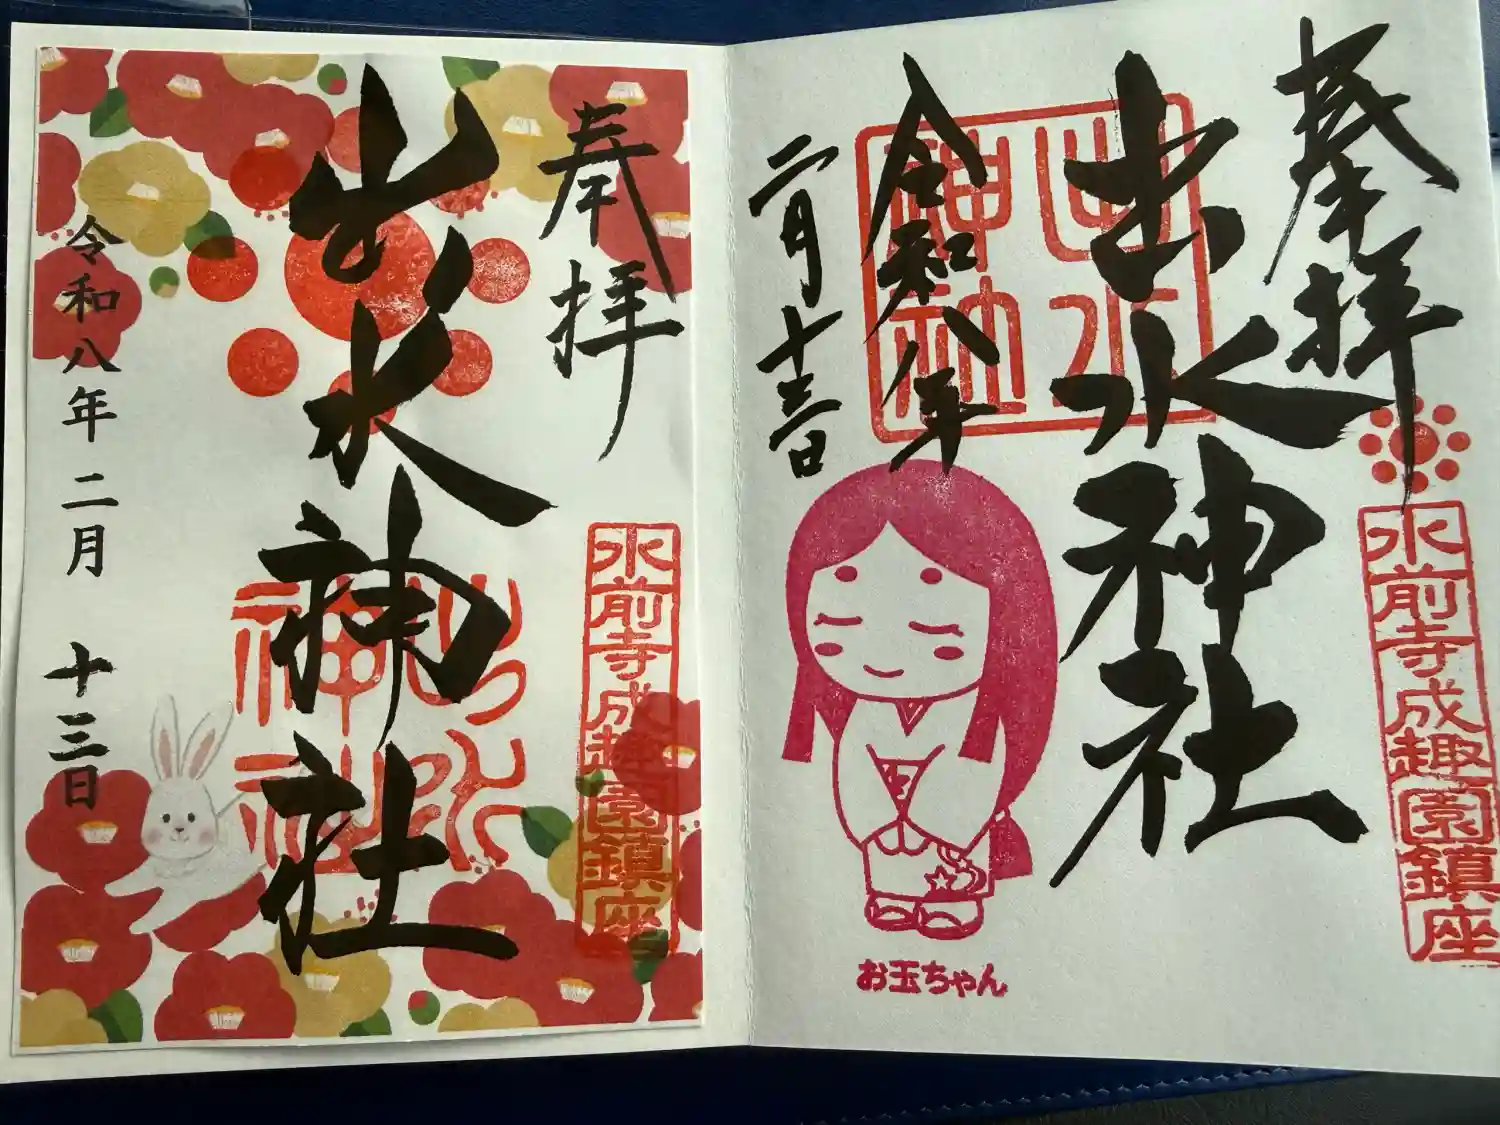 奉拝
出水神社
水前寺成趣園鎮座
出水神社
令和八年二月十三日
奉拝
水前寺成趣園鎮座
出水神社
出水神社
令和八年
二月十三日
お玉ちゃん